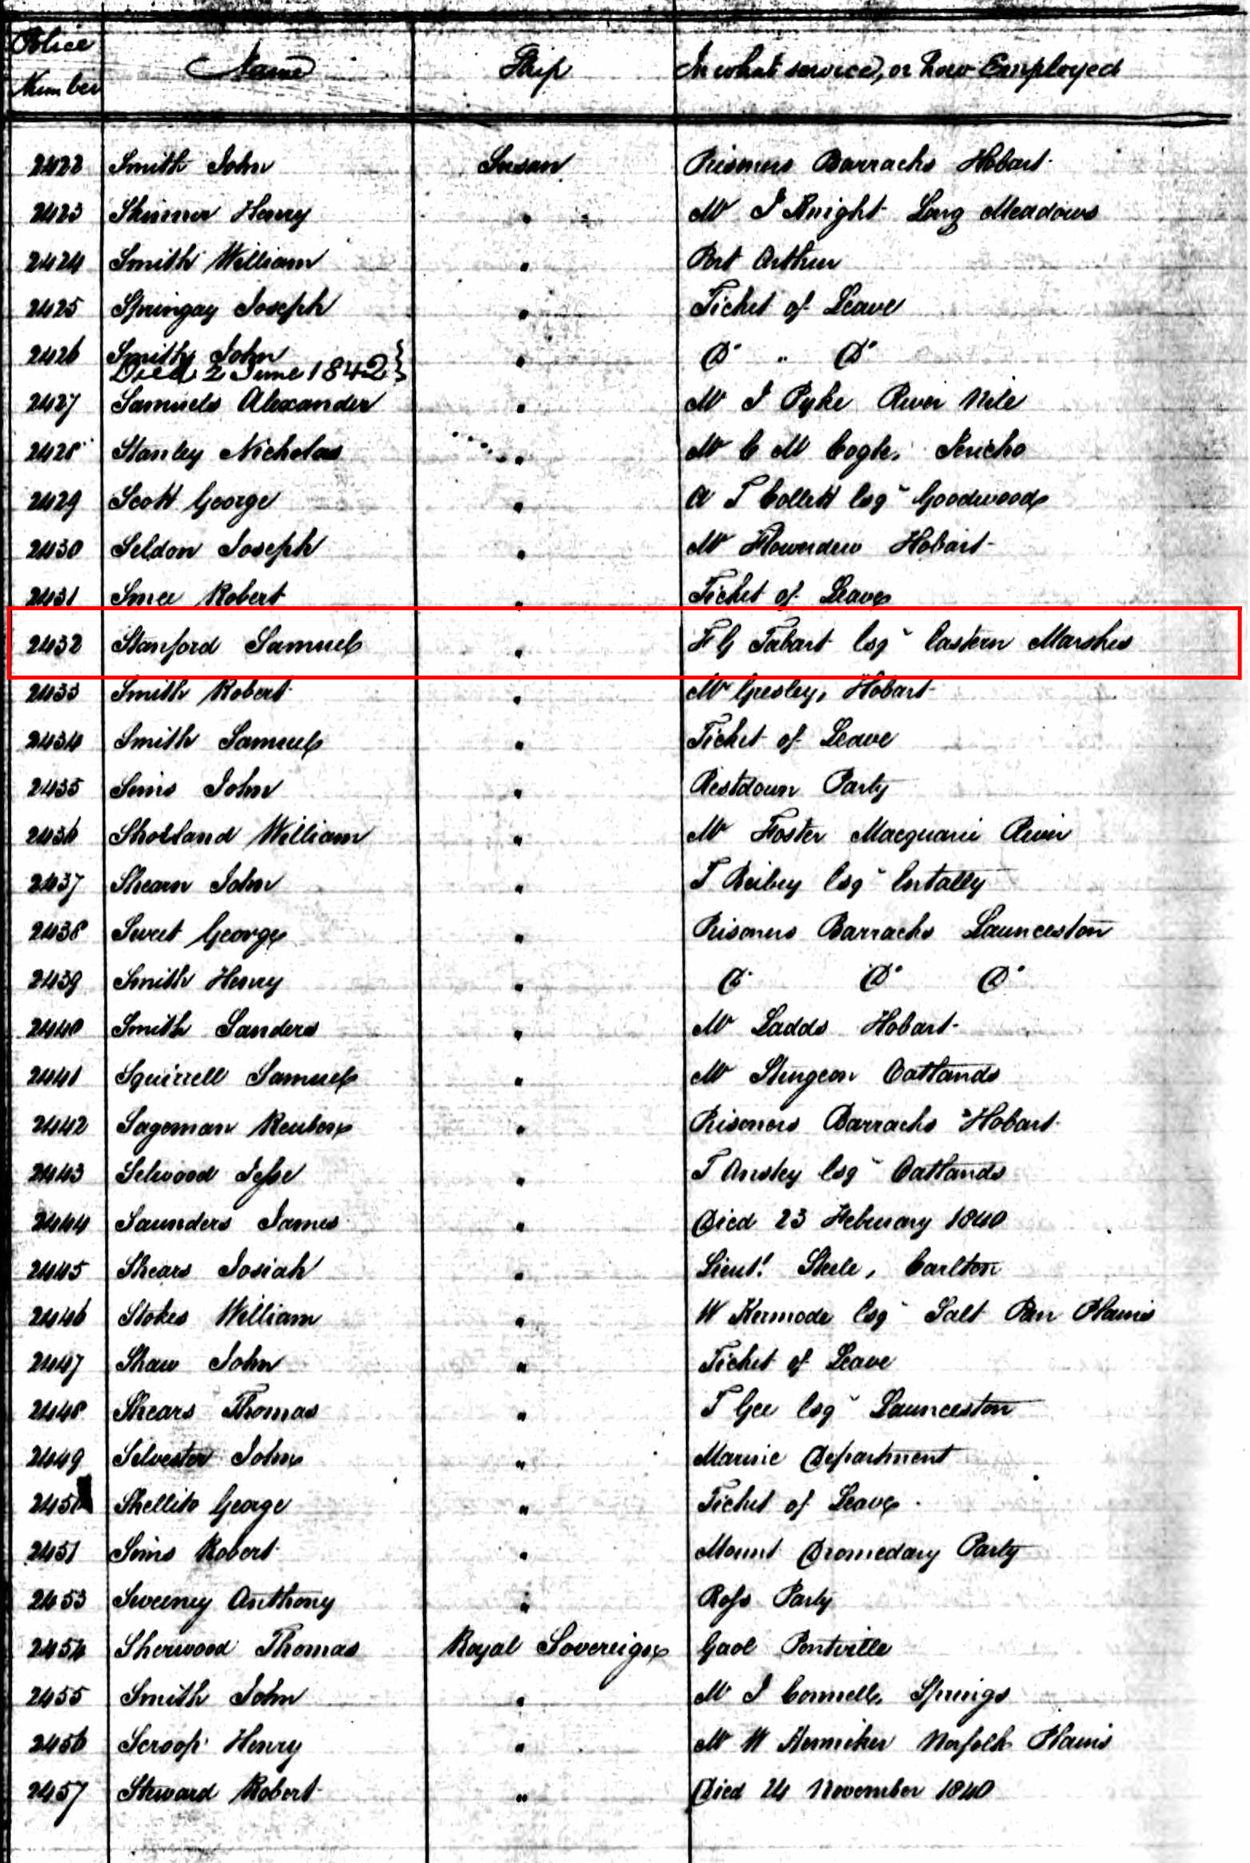 Police Number Name Ship In what service, or how Employed
2422 Smith John Susan Prisoners Barracks Hobart
2423 Skinner Henry " Mr J Knight Long Meadows
2424 Smith William " Port Arthur
2425 Springay Joseph " Ticket of Leave
2426 Smith John " Do " Do
Died 2 June 1842}
2427 Samuels Alexander " Mr J Pyke River Nile
2428 Stanley Nicholas " Mr C M Cogle, Jericho
2429 Scott George " A T Collett Esqr Goodwood
2430 Seldon Joseph " Mr Flowerdew Hobart
2431 Smee Robert " Ticket of Leave
2432 Stanford Samuel " F G Tabart Esqr Eastern Marshes
2433 Smith Robert " Mr Gresley, Hobart
2434 Smith Samuel " Ticket of Leave
2435 Sims John " Restdown Party
2436 William " Mr Foster Macquarie River
2437 Shearn John " T Reibey Esqr Entally
2438 Sweet George " Prisoners Barracks Launceston
2439 Smith Henry " Do Do Do
2440 Smith Sanders " Mr Ladds Hobart
2441 Squirrell Samuel " Mr Oatlands
2442 Sageman Reuben " Prisoners Barracks Hobart
2443 Selwood Jesse " T Anstey Esqr Oatlands
2444 Saunders James " Died 23 February 1840
2445 Shears Josiah " Lieut. Steele, Carlton
2446 Stokes William " W Kermode Esqr Salt Pan Plains
2447 Shaw John " Ticket of Leave
2448 Shears Thomas " T Gee Esqr Launceston
2449 Selvester John " Marine Department
2450 Shellito George " Ticket of Leave
2451 Sims Robert " Mount Dromedary Party
2453 Sweeney Anthony " Ross Party
2454 Sherwood Thomas Royal Sovereign Gaol Pontville
2455 Smith John " Mr J Connell, Springs
2456 Scroop Henry " Mr W Henniker Norfolk Plains
2457 Steward Robert " Died 24 November 1840